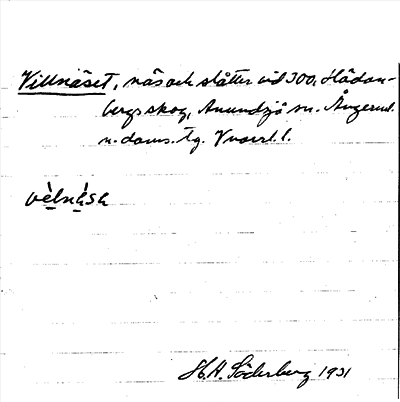 Villnäset, näs och slåtter vid 300, Hädan-
bergs skog, Anundsjö sn. Ångerml.
n. doms. tg. Vnorrl. l.
vèlnása
H. H. Söderberg 1931